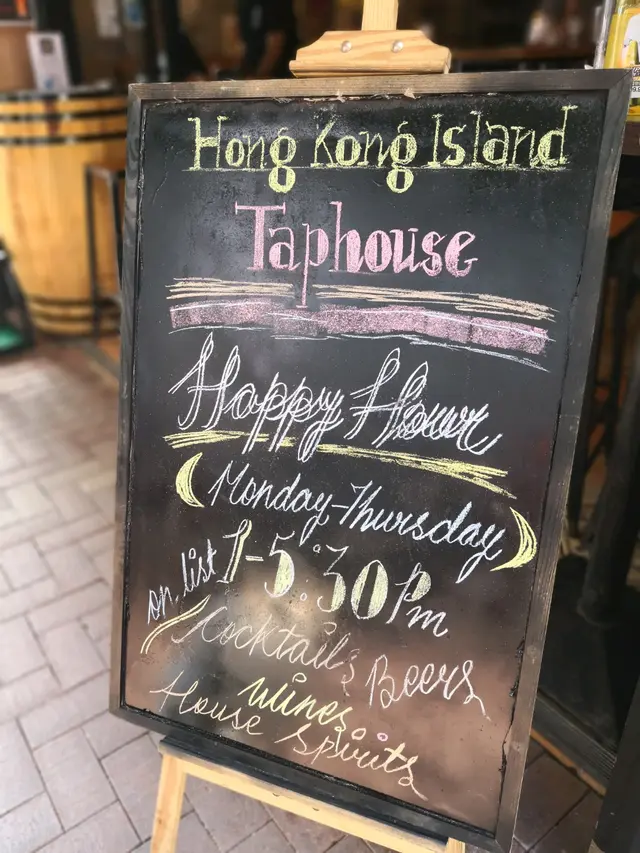 Hong Kong Island
Taphouse
Happy Hour
(Monday-Thursday)
1-5:30 Pm
on list
Cocktails Beers
Wines
House Spirits